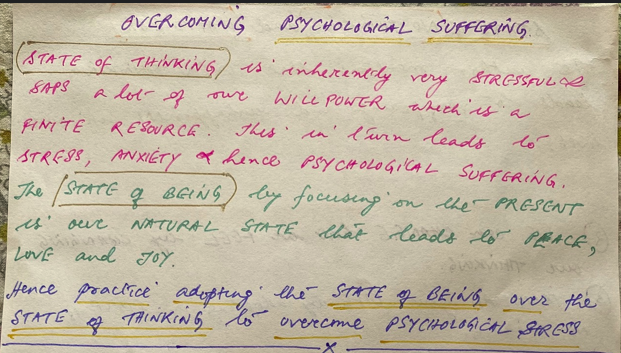 OVERCOMING PSYCHOLOGICAL SUFFERING.
STATE of THINKING is inherently very STRESSFUL &
SAPS a lot of our WILLPOWER which is a
FINITE RESOURCE. This in turn leads to
STRESS, ANXIETY & hence PSYCHOLOGICAL SUFFERING.
The STATE of BEING by focusing on the PRESENT
is our NATURAL STATE that leads to PEACE,
LOVE and JOY.
Hence practice adopting the STATE of BEING over the
STATE of THINKING to overcome PSYCHOLOGICAL STRESS
x